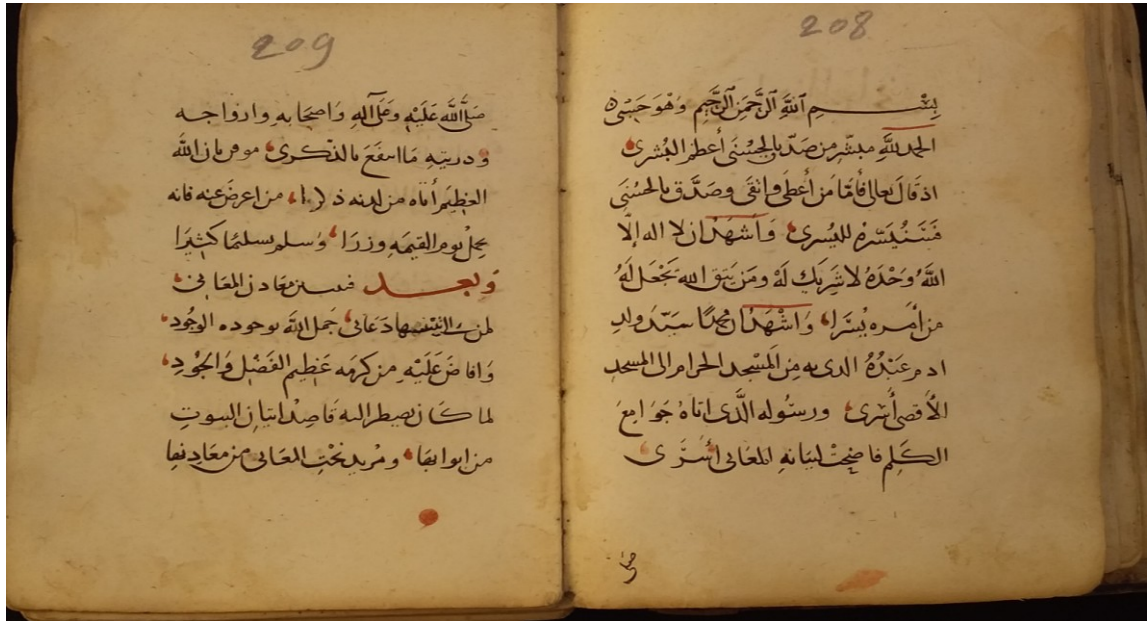 208
بِسْمِ ٱللَّهِ ٱلرَّحْمَنِ ٱلرَّحِيمِ وَهُوَ حَسْبِي
الحمد لله مبشر من صدّق بالحُسْنَى أعظم البُشرى
اذ قال تعالى فأمّا من أعطى واتقى وصَدَّق بالحسنى
فَسَنُيَسّرهُ لليُسرى وَأشهَدُ ان لا اله إلّا
اللهُ وَحْدَهُ لا شَرِيك لَهُ ومَن يَتق الله يَجْعَل لَهُ
من أمره يُسْرًا وَاشْهَدُ ان محمدًا سَيّد ولد
ادم عَبْدُهُ الدى به مِن المَسْجد الحرام الى المسجد
الأقصى أسْرى ورسُوله الَّذى اتاهُ جَوَامِعَ
الكَلِم فاضحتْ لبيَانهِ المعَانى أسْرَى
صلى
209
صَلَّى اللَّه عَلَيْهِ وَعَلَى آلهِ وَاصحَابهِ وازواجه
وذريتهِ مَا انتفَعَ بالذكرى موقن بان الله
العَظِيم أتاه من لدنه ذكرا من اعرضَ عنه فانه
يحملُ يوم القيمَه وزرَا وَسلم تسليمًا كثيرَا
وَبعد فمن معَادن المعَانى
لمن دعَانى جَمل اللَّه بوجوده الوجُود
وَافاضَ عَلَيْهِ من كرمه عَظِيم الفَضْل وَالجُودِ
لما كَان يضطر اليه قاصِد اتيان البيوت
من ابوابهَا ومريد نَحْتِ المعَانى من معَادنهَا